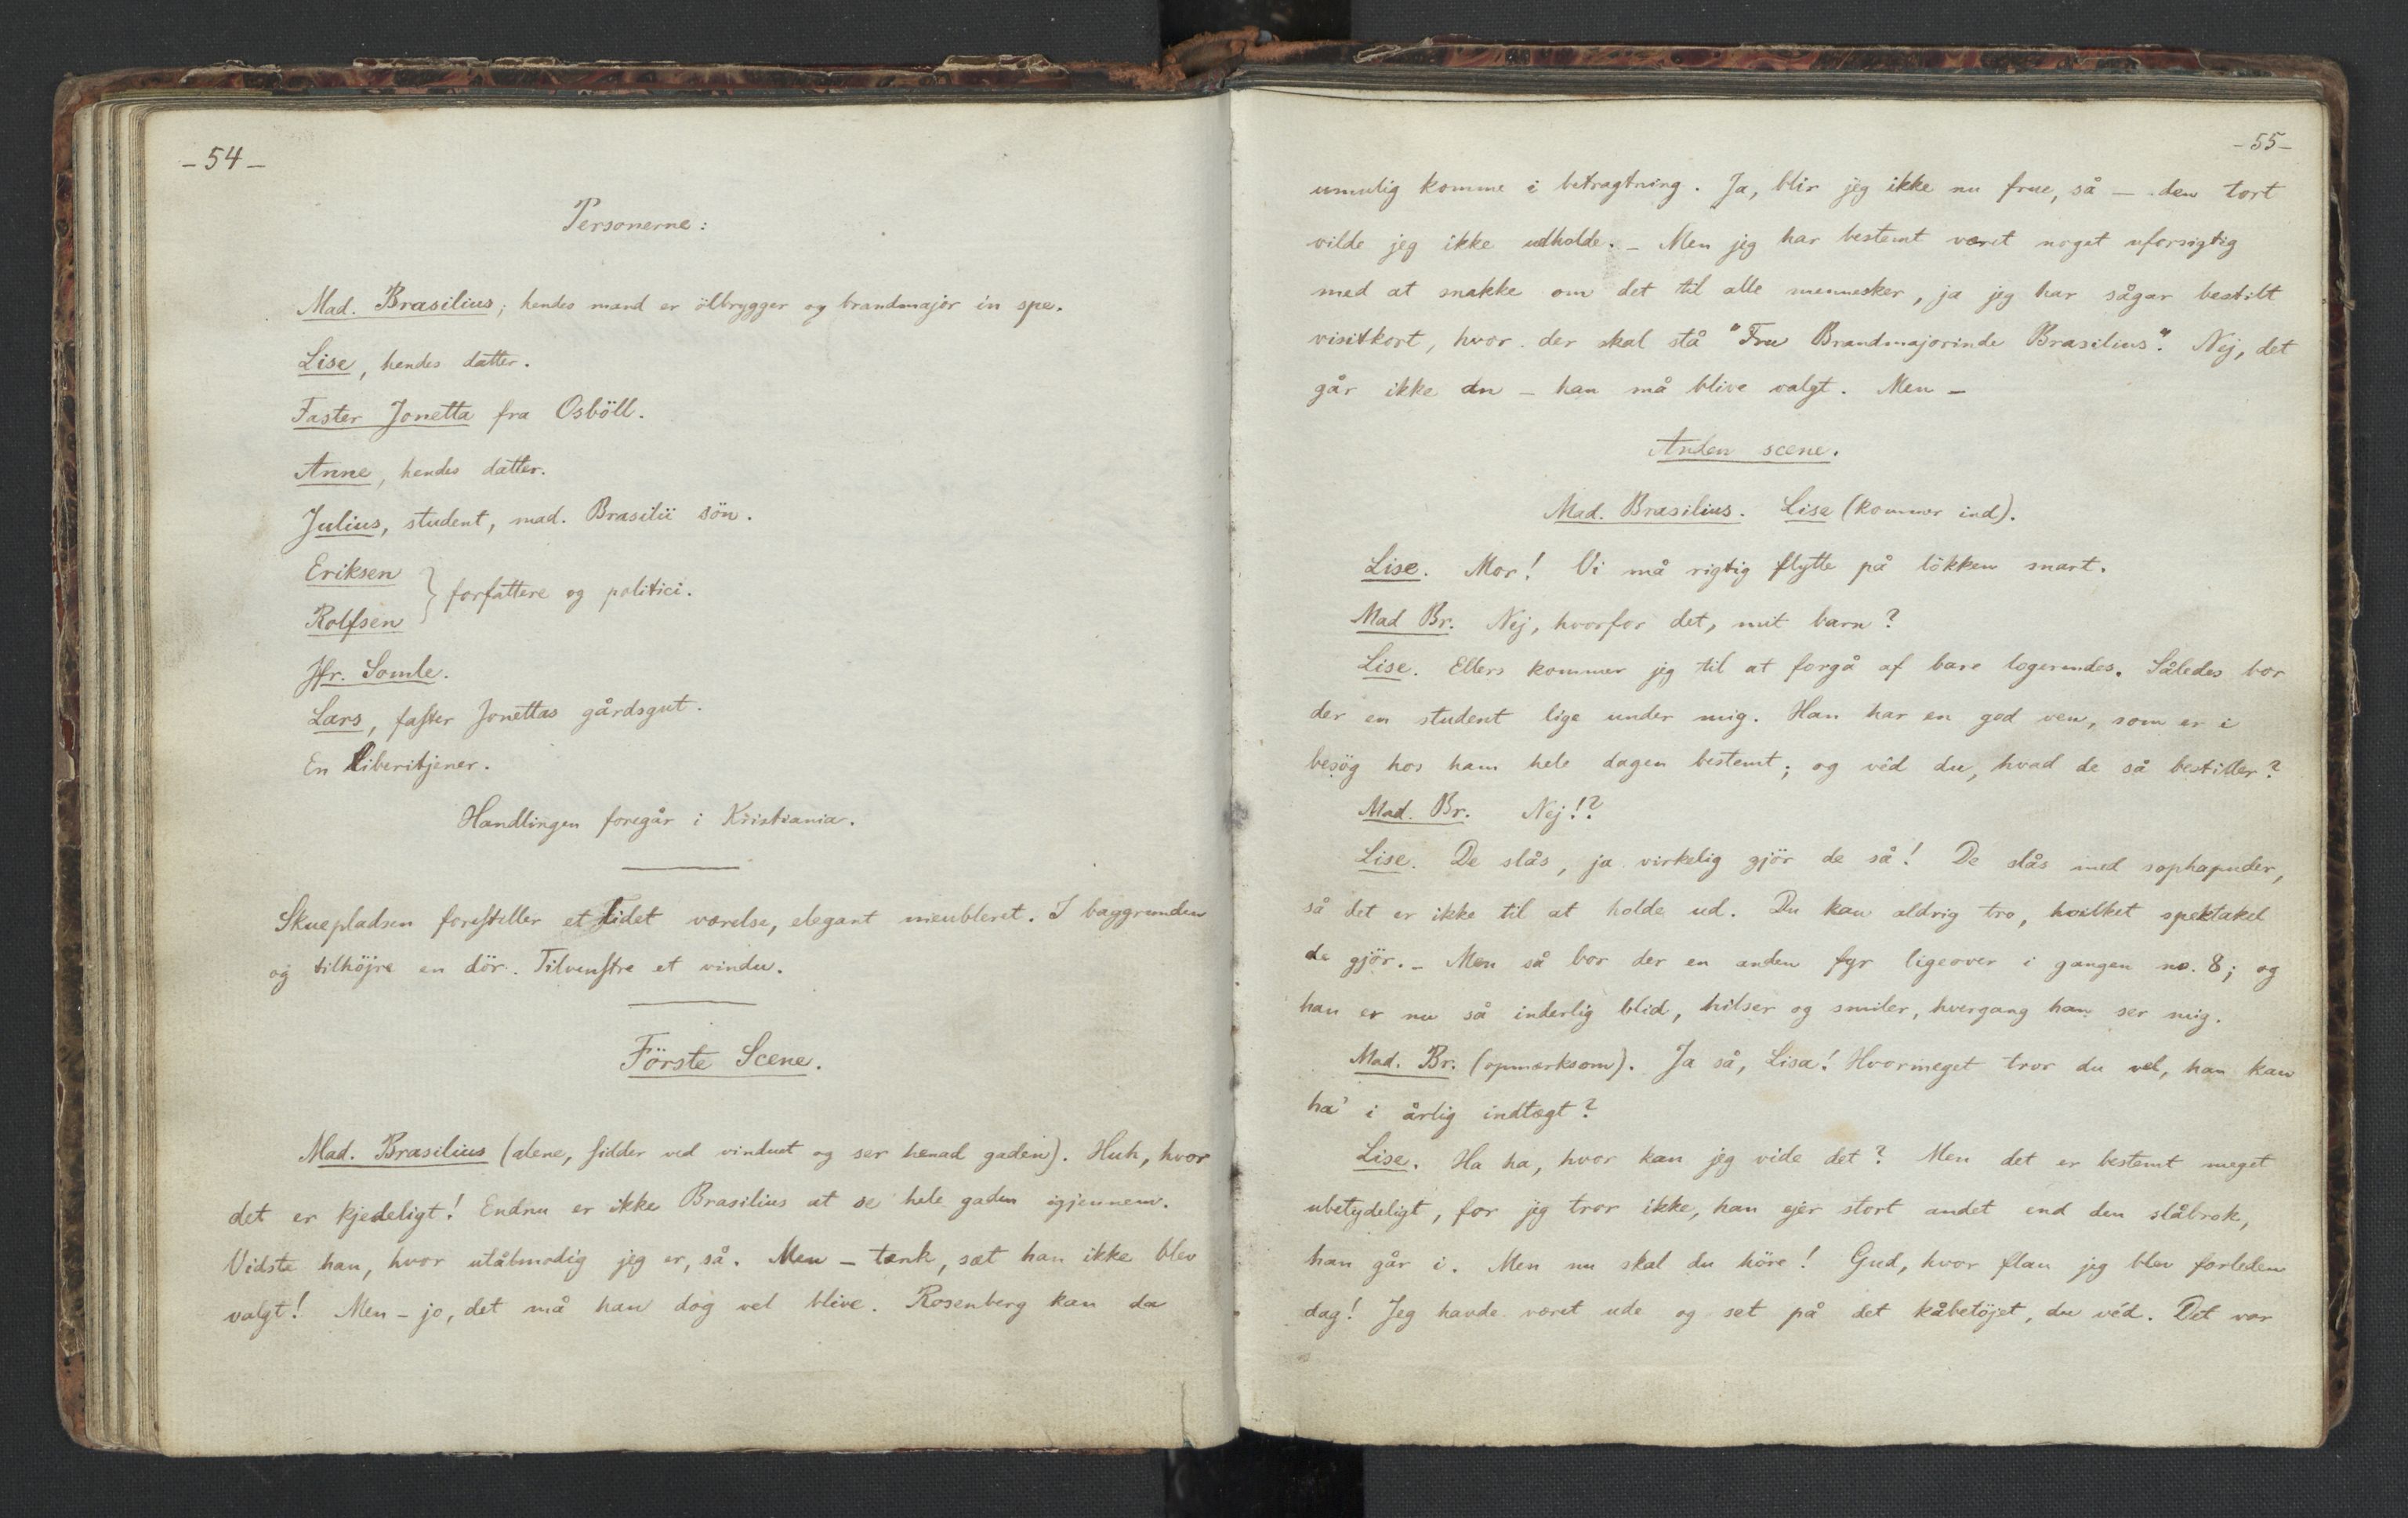 - 54 -
Personerne:
Mad. Brasilius; hendes mand er ölbrygger og brandmajor in spe.
Lise, hendes datter.
Faster Jonetta fra Osböll.
Anne, hendes datter.
Julius, student, mad. Brasilii sön.
Eriksen
Rolfsen } forfattere og politici.
Jfr. Somle.
Lars, faster Jonettas gårdsgut.
En liberitjener.
Handlingen foregår i Kristiania.
Skuepladsen forestiller et lidet værelse, elegant meubleret. I baggrunden
og tilhöjre en dör. Tilvenstre et vindu.
Förste Scene.
Mad. Brasilius (alene, sidder ved vinduet og ser henad gaden). Huh, hvor
det er kjedeligt! Endnu er ikke Brasilius at se hele gaden igjennem.
Vidste han, hvor utålmodig jeg er, så. Men - tænk, sæt han ikke blev
valgt! Men - jo, det må han dog vel blive. Rosenberg kan da
- 55 -
umulig komme i betragtning. Ja, blir jeg ikke nu frue, så - den tort
vilde jeg ikke udholde. - Men jeg har bestemt været noget uforsigtig
med at snakke om det til alle mennesker, ja jeg har sågar bestilt
visitkort, hvor der skal stå "Fru Brandmajorinde Brasilius". Nej, det
går ikke an - han må blive valgt. Men -
Anden scene.
Mad. Brasilius. Lise (kommer ind).
Lise. Mor! Vi må rigtig flytte på lökken snart.
Mad Br. Nej, hvorfor det, mit barn?
Lise. Ellers kommer jeg til at forgå af bare logerendes. Således bor
der en student lige under mig. Han har en god ven, som er i
besög hos ham hele dagen bestemt; og véd du, hvad de så bestiller?
Mad. Br. Nej!?
Lise. De slås, ja virkelig gjör de så! De slås med sophapuder,
så det er ikke til at holde ud. Du kan aldrig tro, hvilket spektakel
de gjör. - Men så bor der en anden fyr ligeover i gangen no. 8; og
han er nu så inderlig blid, hilser og smiler, hvergang han ser mig.
Mad. Br. (opmærksom). Ja så, Lisa! Hvormeget tror du vel, han kan
ha' i årlig indtægt?
Lise. Ha ha, hvor kan jeg vide det? Men det er bestemt meget
ubetydeligt, for jeg tror ikke, han ejer stort andet end den slåbrok,
han går i. Men nu skal du höre! Gud, hvor flau jeg blev forleden
dag! Jeg havde været ude og set på det kåbetöjet, du véd. Det var